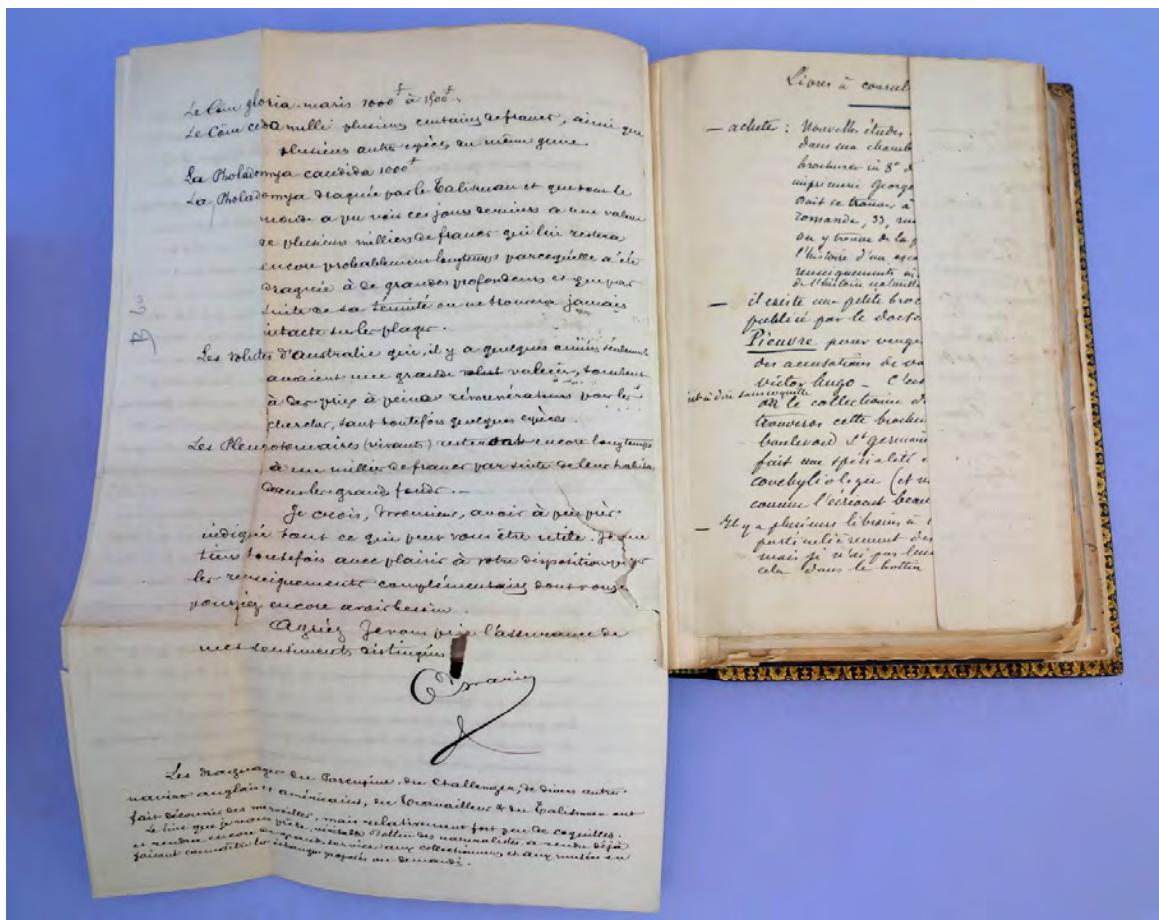 Le Cône gloria-maris 1000 f à 1500 f.
Le Cône cedo nulli plusieurs centaines de francs, ainsi que
plusieurs autres espèces du même genre.
La Pholadomya candida 1000 f
La Pholadomya draguée par le Talisman et que tout le
monde a pu voir ces jours derniers a une valeur
de plusieurs milliers de francs qui lui restera
encore probablement longtemps parcequ'elle a été
draguée à de grandes profondeurs et que par
suite de sa ténuité on ne trouvera jamais
intacte sur les plages.
Les volutes d'Australie qui, il y a quelques années seulement
avaient une grande valeur, tombent
à des prix à peine rémunérateurs pour les
chercher, sauf toutefois quelques espèces.
Les Pleurotomaires (vivants) resteront encore longtemps
à un millier de francs par suite de leur habitat
dans les grands fonds. —
Je crois, Monsieur, avoir à peu près
indiqué tout ce qui peut vous être utile. Je me
tiens toutefois avec plaisir à votre disposition pour
les renseignements complémentaires dont vous
pourriez encore avoir besoin.
Agréez Je vous prie l'assurance de
mes sentiments distingués
Les draguages du Porcupine, du Challenger, de divers autres
navires anglais et américains, du Travailleur & du Talisman ont
fait découvrir des merveilles, mais relativement fort peu de coquilles.
Le livre que je vous prête, véritable Bottin des naturalistes, a rendu déjà
et rendra encore de grands services aux collectionneurs et aux musées en
faisant connaître les échanges proposés ou demandés.
Livres à consul
— acheter : Nouvelles études
dans ma chamb
brochure in 8°
imprimerie George
doit se trouver à
romande, 33, rue
on y trouve de la p
l'histoire d'un esca
renseignements
de l'histoire naturelle
— il existe une petite broc
publiée par le docte
Pieuvre pour venge
des accusations de
Victor Hugo — C'est
c'est à dire sans coquille
où le collectionne d
trouveras cette brochu
boulevard St germain
fait une spécialité
conchyliologie (et
comme l'écrivent beau
— Il y a plusieurs libraires à
particulièrement des
mais je n'ai pas leur
cela dans le bottin